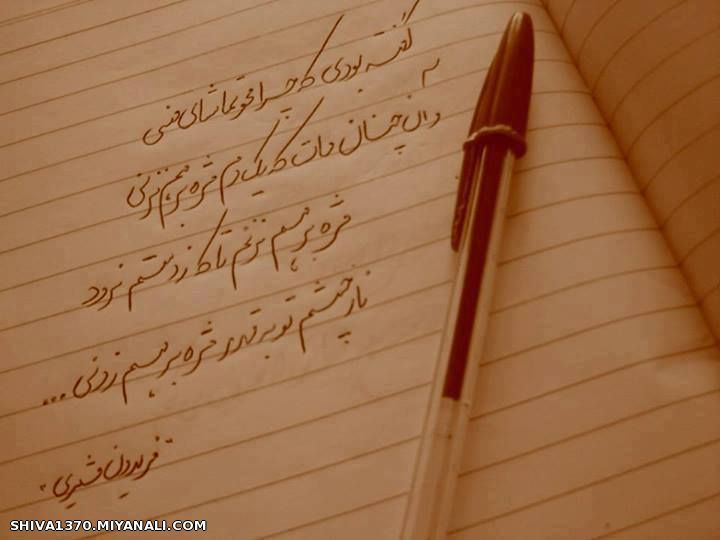 گفته بودی که چرا محو تماشای منی
وان چنان مات که یک دم مژه بر هم نزنی
مژه بر هم نزنم تا که ز دستم نرود
ناز چشم تو به قدر مژه بر هم زدنی ...
"فریدون مشیری"
SHIVA1370.MIYANALI.COM